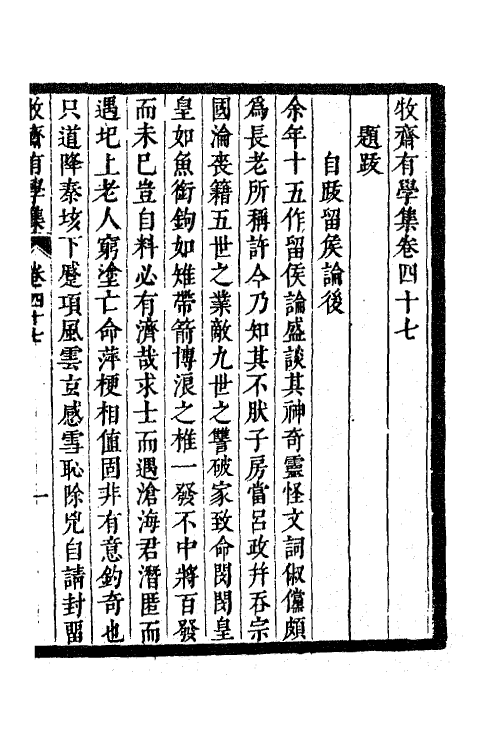 牧齋有學集卷四十七
題跋
自跋留侯論後
余年十五作留侯論盛談其神奇靈怪文詞俶儻頗
爲長老所稱許今乃知其不肰子房當呂政幷吞宗
國淪喪籍五世之業敵九世之讐破家致命閔閔皇
皇如魚銜鉤如雉帶箭博浪之椎一發不中將百發
而未已豈自料必有濟哉求士而遇滄海君潛匿而
遇圯上老人窮塗亡命萍梗相値固非有意釣奇也
只道降秦垓下蹙項風雲玄感雪恥除兇自請封留
牧齋有學集 卷四十七 一